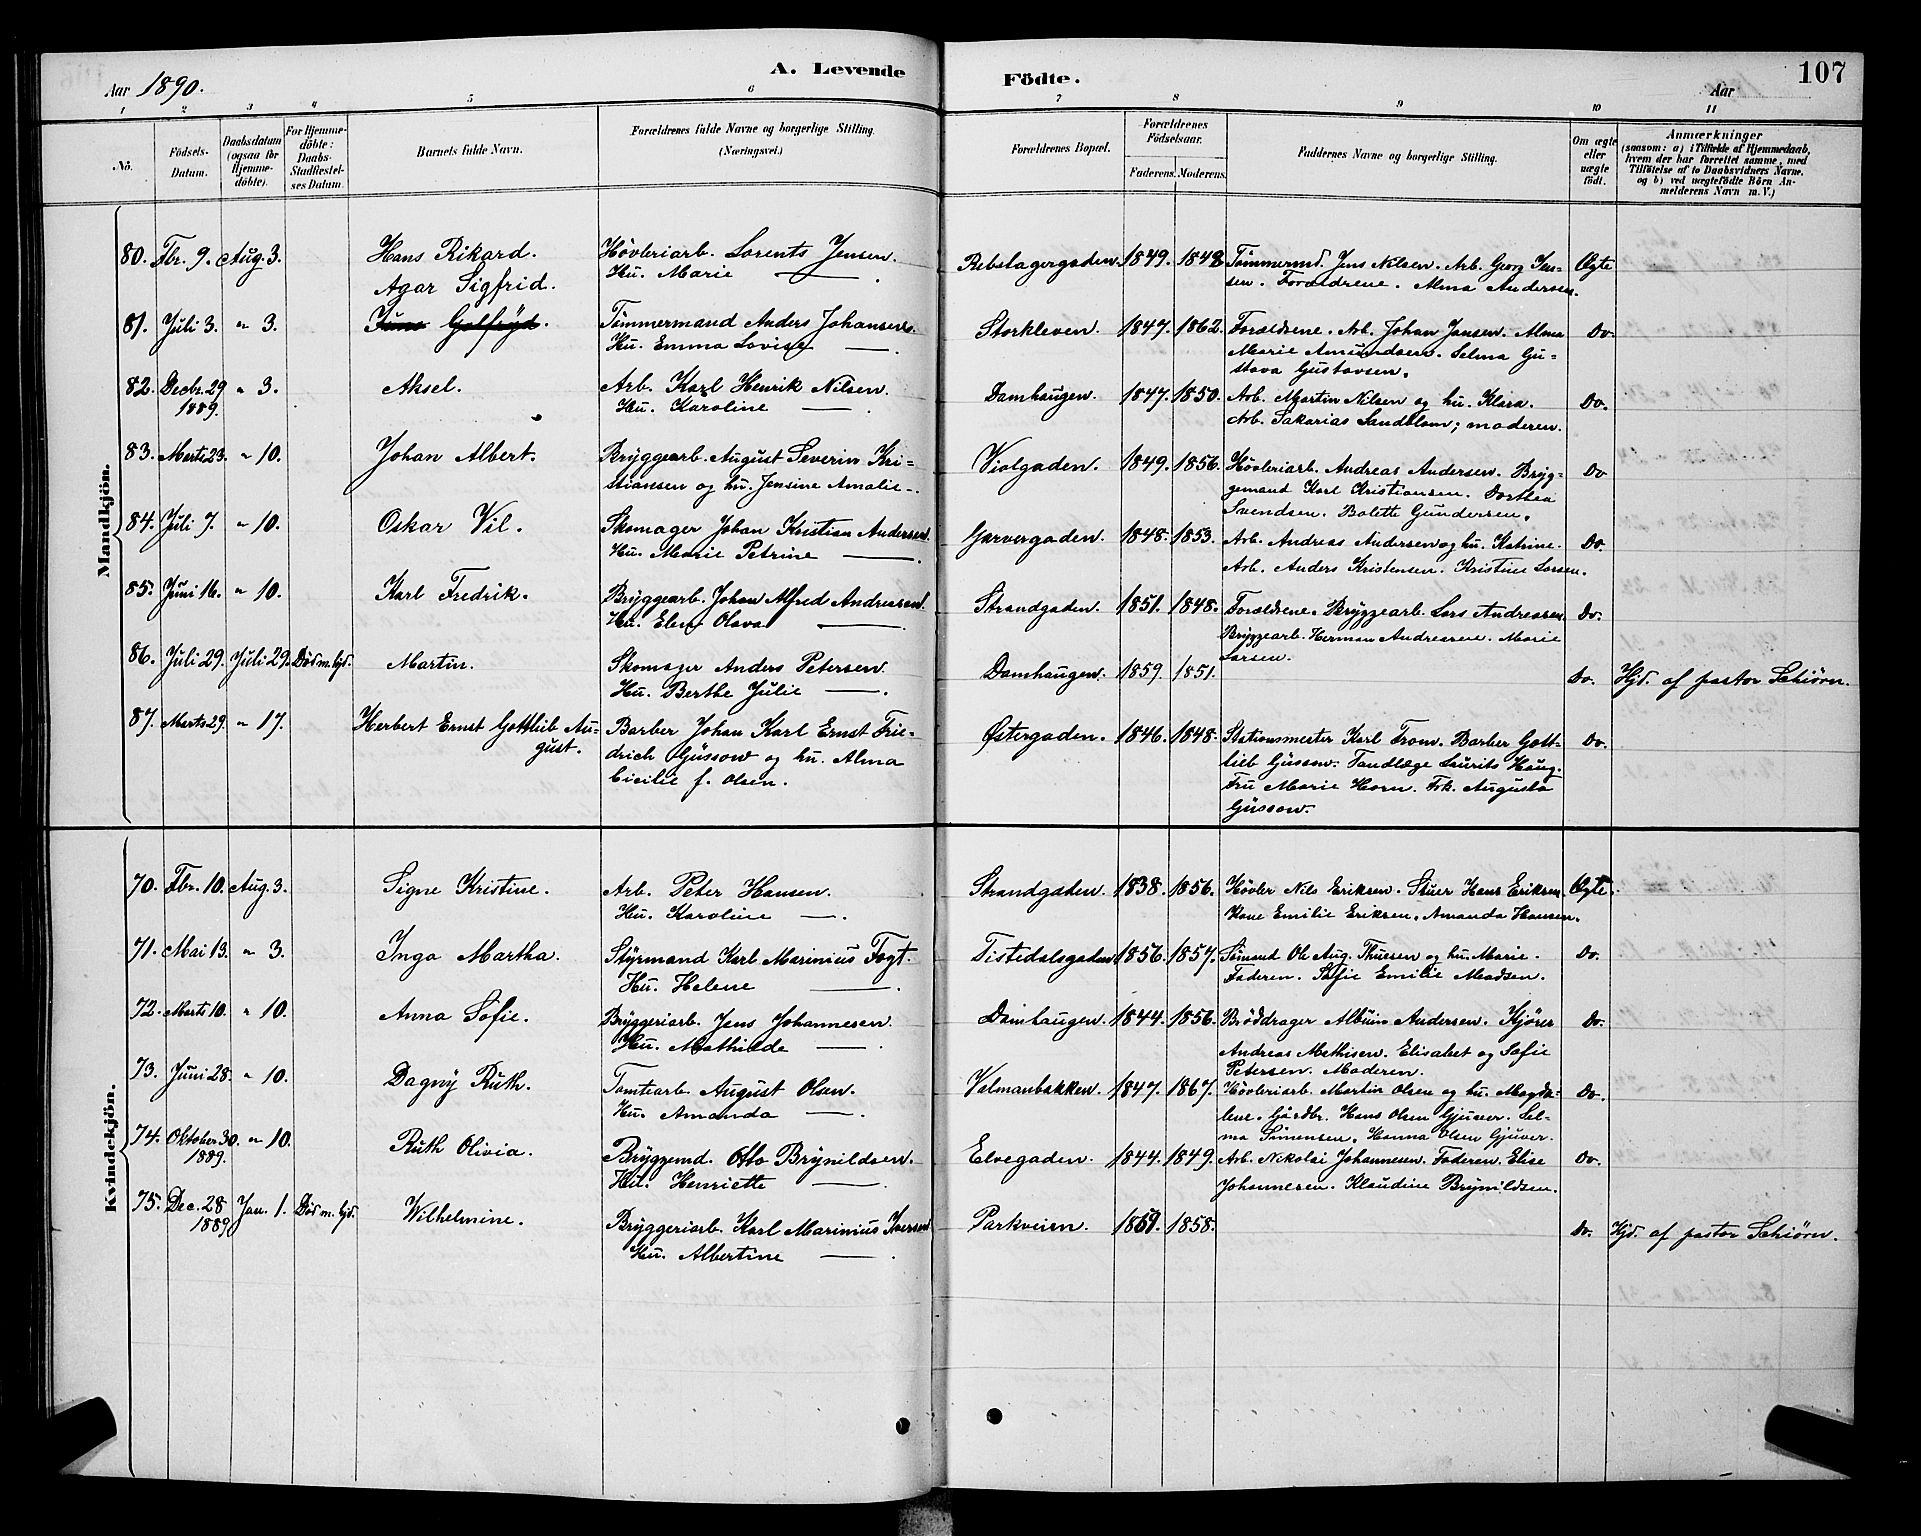 Aar 1890.
A. Levende
Födte.
Aar
107
1 2 3 4 5 6 7 8 9 10 11
No.
Födsels-Datum.
Daabsdatum (ogsaa for Hjemme-döbte).
For Hjemme-döbte: Daabs-Stadfæstel-ses Datum.
Barnets fulde Navn.
Forældrenes fulde Navne og borgerlige Stilling.
(Næringsvei.)
Forældrenes Bopæl.
Forældrenes Födselsaar.
Faderens. Moderens.
Faddernes Navne og borgerlige Stilling.
Om ægte eller uægte födt.
Anmærkninger
(saasom: a) i Tilfælde af Hjemmedaab, hvem der har forrettet samme, med Tilföielse af to Daabsvidners Navne, og b) ved uægtefödte Börn An-melderens Navn m. V.)
Mandkjön.
80. Fbr. 9. Aug. 3. Hans Rikard. Høvleriarb. Lorents Jensen. Rebslagergaden. 1849. 1848 Tømmermd. Jens Nilsen. Arb. Georg Jen- Ægte
Hu. Marie — . sen. Forældrene. Alma Andersen.
Agar Sigfrid.
81. Juli 3. " 3. Golfryd. Tømmermand Anders Johansen. Storkleven. 1847. 1862. Forældrene. Arb. Johan Jansen. Alma Do.
Hu. Emma Lovise — . Marie Amundsen. Selma Gu-
stava Gustavsen.
82. Decbr. 29 " 3. Aksel. Arb. Karl Henrik Nilsen. Damhaugen. 1847. 1850. Arb. Martin Nilsen og hu. Klara. Do.
1889. Hu. Karoline — . Arb. Sakarias Sandblom; moderen.
83. Marts 23. " 10. Johan Albert. Bryggearb. August Severin Kri- Violgaden. 1849. 1856. Høvleriarb. Andreas Andersen. Bryg- Do
stiansen og hu. Jensine Amalie —. gemand Karl Kristiansen. Dorthea
Svendsen. Bolette Gundersen.
84. Juli 7. " 10. Oskar Vil. Skomager Johan Kristian Andersen. Garvergaden. 1848. 1853. Arb. Andreas Andersen og hu. Katrine. Do.
Hu. Marie Petrine — . Arb. Anders Kristensen. Kristine Larsen.
85. Juni 16. " 10. Karl Fredrik. Bryggearb. Johan Alfred Andreasen. Strandgaden. 1851. 1848. Forældrene. Bryggearb. Lars Andreasen Do.
Hu. Elen Olava — . Bryggearb. Herman Andreasene. Marie
Larsen.
86. Juli 29. Juli 29. Död m. hjd. Martin. Skomager Anders Petersen. Damhaugen. 1859. 1851. Do. Hjd. af pastor Schiørn.
Hu. Berthe Julie — .
87. Marts 29. " 17. Herbert Ernst Gottlieb Au- Barber Johan Karl Ernst Frie- Østergaden. 1846. 1848. Stationsmester Karl From. Barber Gott- Do.
gust. drich Güssow og hu. Alma lieb Güssow. Tandlæge Laurits Haug.
Cicilie f. Olsen. Fru Marie Horn. Frk. Augusta
Güssow.
Kvindekjön.
70. Fbr. 10. Aug. 3. Signe Kristine. Arb. Peter Hansen. Strandgaden. 1838. 1856. Høvler Nils Eriksen. Stuer Hans Eriksen. Ægte.
Hu. Karoline — . Kone Emilie Eriksen. Amanda Hansen.
71. Mai 13. " 3. Inga Martha. Styrmand Karl Marinius Fogt. Tistedalsgaden 1856. 1857. Sömand Ole Aug. Thuesen og hu. Marie. Do.
Hu. Helene — . Faderen. Sofie Emilie Madsen.
72. Marts 10. " 10. Anna Sofie. Bryggeriarb. Jens Johannesen. Damhaugen. 1844. 1856. Brøddrager Albuin Andersen. Kjörer Do.
Hu. Mathilde — . Andreas Mathisen. Elisabet og Sofie
Petersen. Moderen.
73. Juni 28. " 10. Dagny Ruth. Tomtarb. August Olsen. Valmanbakken. 1847. 1867. Høvleriarb. Martin Olsen og hu. Magda- Do.
Hu. Amanda — . lene. Gårdbr. Hans Olsen Gjuver. Sel-
ma Simensen. Hanna Olsen Gjuver.
74. Oktober 30. " 10. Ruth Olivia. Bryggemd. Otto Brynildsen. Elvegaden. 1844. 1849. Arb. Nikolai Johannesen. Faderen. Elise Do.
1889. Hu. Henriette — . Johannesen. Klaudine Brynildsen.
75. Dec. 28 Jan. 1. Död m. hjd. Wilhelmine. Bryggeriarb. Karl Marinius Iversen Parkveien. 1859. 1858. Do. Hjd. af pastor Schiørn.
1889. Hu. Albertine — .